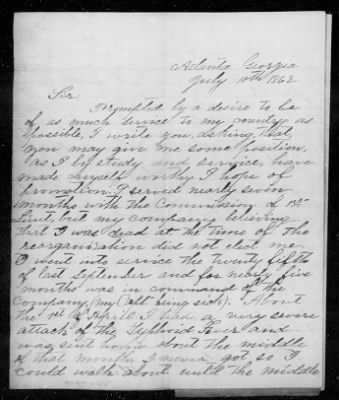 Atlanta Georgia
July 10th 1862
Sir
Prompted by a desire to be
of as much service to my country as
possible, I write you, asking that
you may give me some position.
As I by study and service, have
made myself worthy I hope of
promotion. I served nearly seven
months with the Commission of 1st
Lieut, but my company believing
that I was dead at the time of the
reorganization did not elect me.
I went into service the twenty fifth
of last September and for nearly five
months was in command of the
company, (my Capt being sick). About
the 1st of April I had a very severe
attack of the Typhoid Fever and
was sent home about the middle
of that month. I never got so I
could walk about until the middle